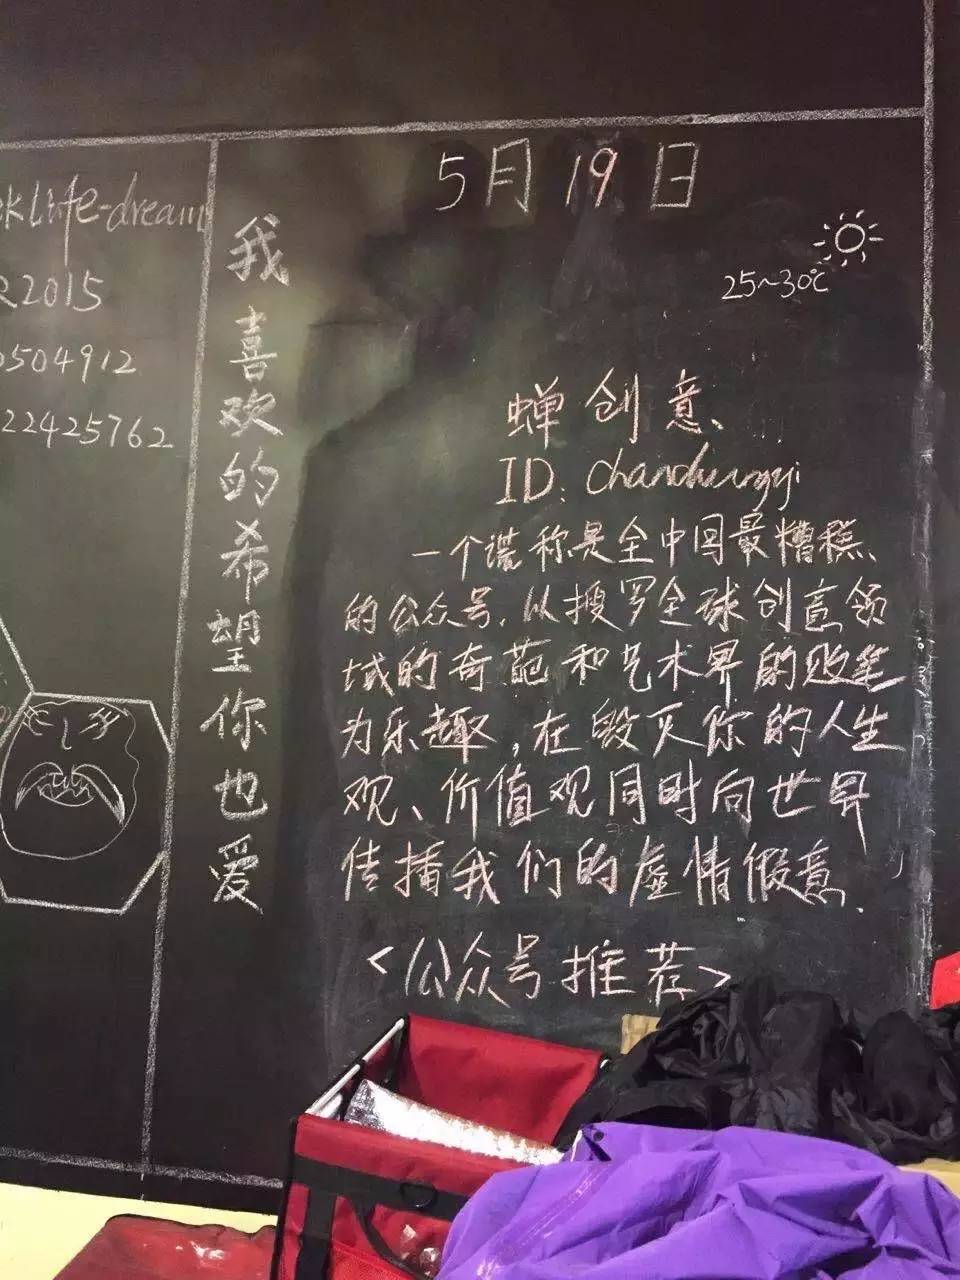 life-dream
2015
0504912
22425762
我喜欢的希望你也爱
5月19日
25~30℃
蝉创意
ID: chanchuangyi
一个谎称是全中国最糟糕
的公众号,从搜罗全球创意领
域的奇葩和艺术界的败笔
为乐趣,在毁灭你的人生
观、价值观同时向世界
传播我们的虚情假意.
<公众号推荐>